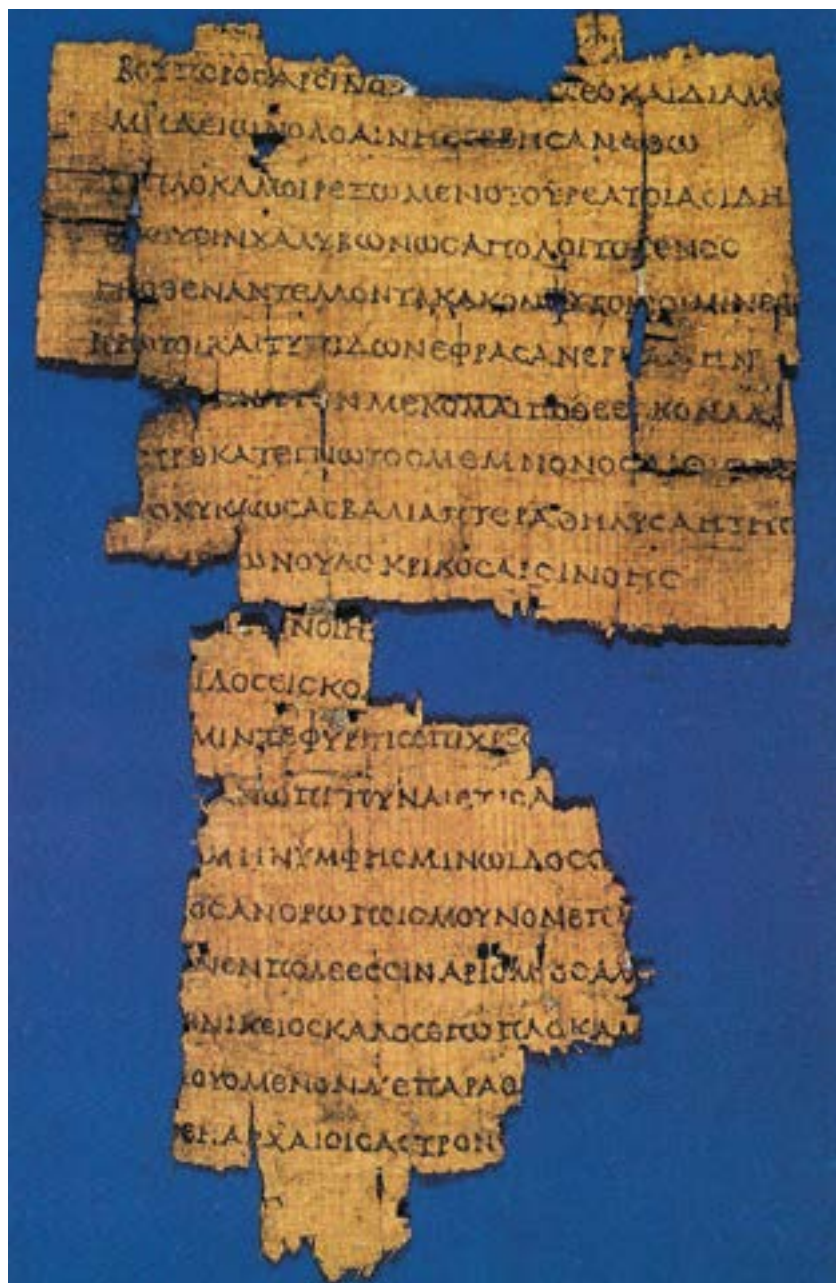 ΒΟΥΠΟΡΟϹΑΡϹΙΝΟ ϹΕΟΚΑΙΔΙΑΜΕ
ΜΗΔΕΙΩΝΟΛΟΑΙΝΗΕϹΕΒΗϹΑΝΑΘΩ
ΤΙΠΛΟΚΑΜΟΙΡΕΞΩΜΕΝΟΤΟΥΡΕΑΤΟΙΑϹΙΔΗ
ΚΟΥϹΙΝΧΑΛΥΒΩΝΩϹΑΠΟΛΟΙΤΟΓΕΝΟϹ
ΓΕΙΟΘΕΝΑΝΤΕΛΛΟΝΤΑΚΑΚΟΝΦΥΤΟΝΟΙΜΙΝΕΦ
ΠΡΩΤΟΙΚΑΙΤΥΠΙΔΩΝΕΦΡΑϹΑΝΕΡΓΑϹΙΗΝ
ΤΜΗΤΟΝΜΕΚΟΜΑΙΠΟΘΕΕϹΚΟΝΑΔΕ
ΠΡΟΚΑΤΕΓΝΩΤΟϹΜΕΜΝΟΝΟϹΑΙΘΙΟΠΟϹ
ΟΚΥΚΛΩϹΑϹΒΑΛΙΑΠΤΕΡΑΘΗΛΥϹΑΗΤΗϹ
ΩΝΟΥΛΟΚΡΙΚΟϹΑΡϹΙΝΟΗϹ
ΝΟΙΗ
ΙΔΟϹΕΙϹΚΟΛ
ΜΙΝΖΕΦΥΡΙΤΙϹΕΠΙΧΡΕΟ
ΚΑΝΩΠΙΤΟΥΝΑΙΕΤΙϹΑ
ΜΗΝΥΜΦΗϹΜΙΝΩΙΔΟϹΟ
ΟϹΑΝΘΡΩΠΟΙϹΜΟΥΝΟΝΕΠΙ
ΙΝΕΝΠΟΛΕΕϹϹΙΝΑΡΙΘΜΙΟϹΑΛΛ
ΕΝΙΚΕΙΟϹΚΑΛΟϹΕΓΩΠΛΟΚΑΜ
ΛΟΥΟΜΕΝΟΝΜΕΠΑΡΑΘΑ
ϹΕΝΑΡΧΑΙΟΙϹΑϹΤΡΟΝ